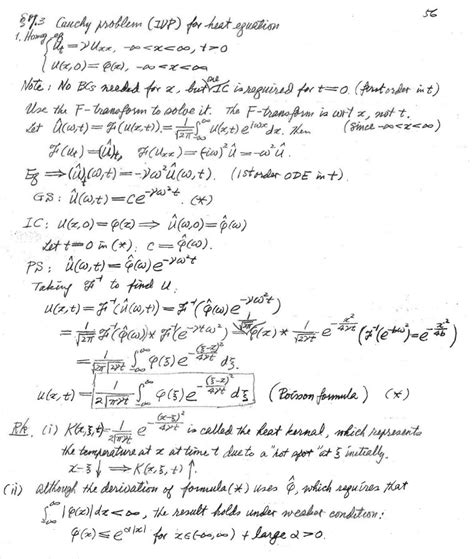 56
§7.3 Cauchy problem (IVP) for heat equation
1. Homog eq
{ u_t = γ u_xx, -∞<x<∞, t>0
u(x,0) = φ(x), -∞<x<∞
Note: No BCs needed for x, but one IC is required for t=0 (first order in t)
Use the F-transform to solve it. The F-transform is w.r.t x, not t.
Let û(ω,t) = F(u(x,t)) = 1/√2π ∫_{-∞}^{∞} u(x,t) e^{iωx} dx. Then (since -∞<x<∞)
F(u_t) = (û)_t, F(u_xx) = (-iω)² û = -ω² û.
Eq ⟹ (û)_t(ω,t) = -γω² û(ω,t). (1st order ODE in t).
GS: û(ω,t) = c e^{-γω²t}. (*)
IC: u(x,0) = φ(x) ⟹ û(ω,0) = φ̂(ω)
Let t=0 in (*): c = φ̂(ω).
PS: û(ω,t) = φ̂(ω) e^{-γω²t}
Taking F⁻¹ to find u.
u(x,t) = F⁻¹(û(ω,t)) = F⁻¹(φ̂(ω) e^{-γω²t})
= 1/√2π F⁻¹(φ̂(ω)) * F⁻¹(e^{-γω²t}) = 1/√2π φ(x) * 1/√2γt e^{-x²/4γt} (F⁻¹(e^{-bω²}) = e^{-x²/4b})
= 1/√2π√2γt ∫_{-∞}^{∞} φ(ξ) e^{-(ξ-x)²/4γt} dξ.
u(x,t) = 1/2√πγt ∫_{-∞}^{∞} φ(ξ) e^{-(ξ-x)²/4γt} dξ (Poisson formula) (*)
Rk. (i) K(x,ξ,t) = 1/2√πγt e^{-(x-ξ)²/4γt} is called the heat kernal, which represents
the temperature at x at time t due to a "hot spot" at ξ initially.
x-ξ ↓ ⟹ K(x,ξ,t) ↑.
(ii) although the derivation of formula (*) uses φ̂, which requires that
∫_{-∞}^{∞} |φ(x)| dx < ∞, the result holds under weaker condition:
φ(x) ≤ e^{α|x|} for x∈(-∞,∞) + large α>0.